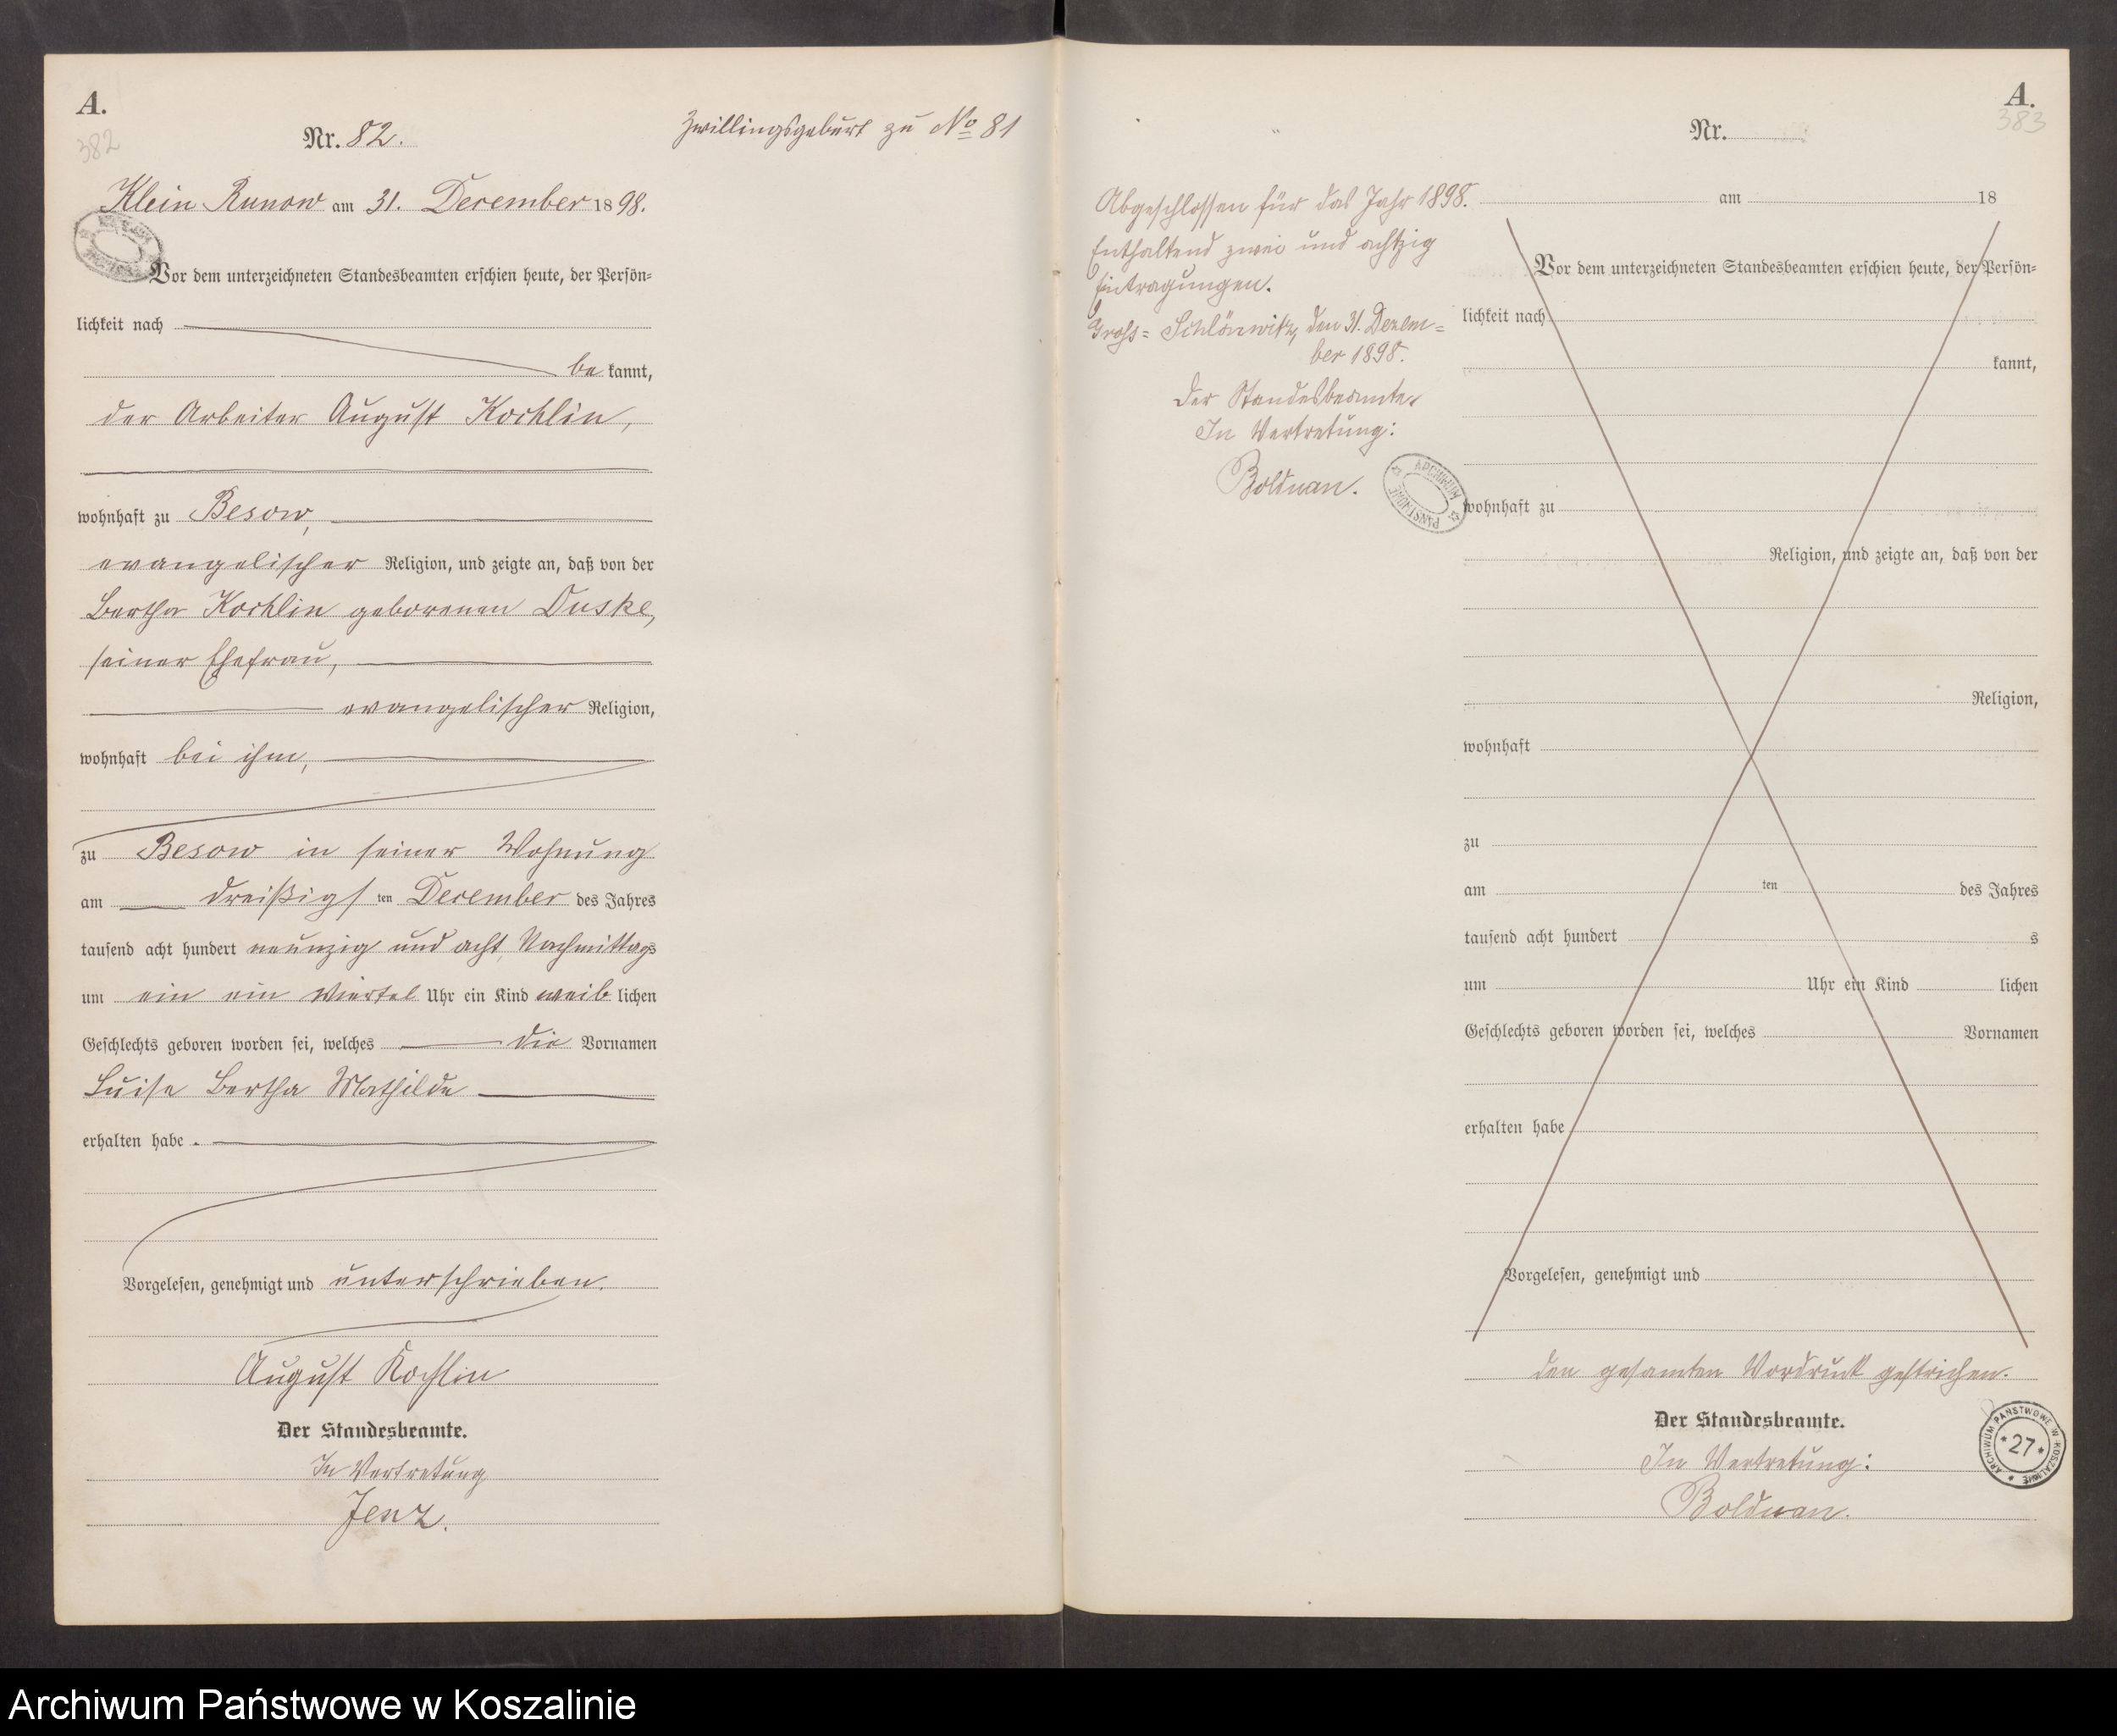 A.
382
Nr. 82.
Zwillingsgeburt zu No 81
Klein Runow am 31. December 1898.
Vor dem unterzeichneten Standesbeamten erschien heute, der Persön=
lichkeit nach
be kannt,
der Arbeiter August Kochlin,
wohnhaft zu Besow,
evangelischer Religion, und zeigte an, daß von der
Bertha Kochlin geborenen Duske,
seiner Ehefrau,
evangelischer Religion,
wohnhaft bei ihm,
zu Besow in seiner Wohnung
am dreißigs ten December des Jahres
tausend acht hundert neunzig und acht, Nachmittags
um ein ein Viertel Uhr ein Kind weib lichen
Geschlechts geboren worden sei, welches die Vornamen
Luise Bertha Mathilde
erhalten habe.
Vorgelesen, genehmigt und unterschrieben.
August Kochlin
Der Standesbeamte.
In Vertretung
Jenz.
A.
383
Abgeschlossen für das Jahr 1898.
Enthaltend zwei und achtzig
Eintragungen.
Gross= Schlönwitz, den 31. Dezem=
ber 1898.
Der Standesbeamte.
In Vertretung:
Bolduan.
ARCHIWUM PAŃSTWOWE
Nr.
am 18
Vor dem unterzeichneten Standesbeamten erschien heute, der Persön=
lichkeit nach
kannt,
wohnhaft zu
Religion, und zeigte an, daß von der
Religion,
wohnhaft
zu
am ten des Jahres
tausend acht hundert s
um Uhr ein Kind lichen
Geschlechts geboren worden sei, welches Vornamen
erhalten habe
Vorgelesen, genehmigt und
den gesamten Vordruck gestrichen.
Der Standesbeamte.
In Vertretung:
Bolduan.
ARCHIWUM PAŃSTWOWE W KOSZALINIE
*27*
Archiwum Państwowe w Koszalinie